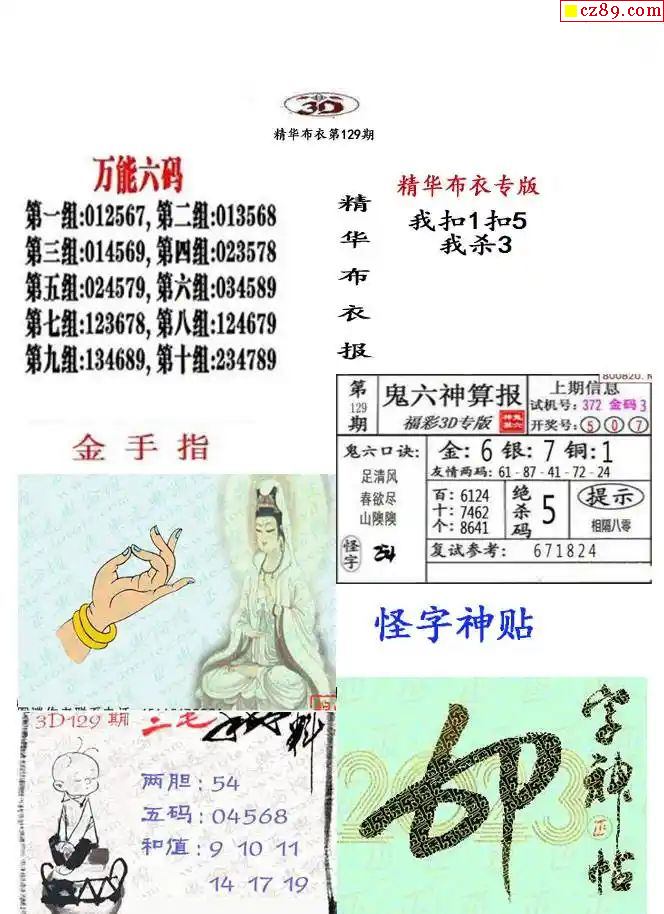 cz89.com
3D
精华布衣第129期
万能六码
第一组:012567, 第二组:013568
第三组:014569, 第四组:023578
第五组:024579, 第六组:034589
第七组:123678, 第八组:124679
第九组:134689, 第十组:234789
精华布衣报
精华布衣专版
我扣1扣5
我杀3
第129期
鬼六神算报
福彩3D专版
上期信息
试机号: 372 金码 3
开奖号: 5 0 7
鬼六口诀:
足清风
春欲尽
山隩隩
怪字
金: 6 银: 7 铜: 1
友情两码: 61 - 87 - 41 - 72 - 24
百: 6124
十: 7462
个: 8641
绝杀码 5
提示
相隔八零
复试参考: 671824
金手指
怪字神贴
3D129 期
两胆 : 54
五码 : 04568
和值 : 9 10 11
14 17 19
2023
字神帖